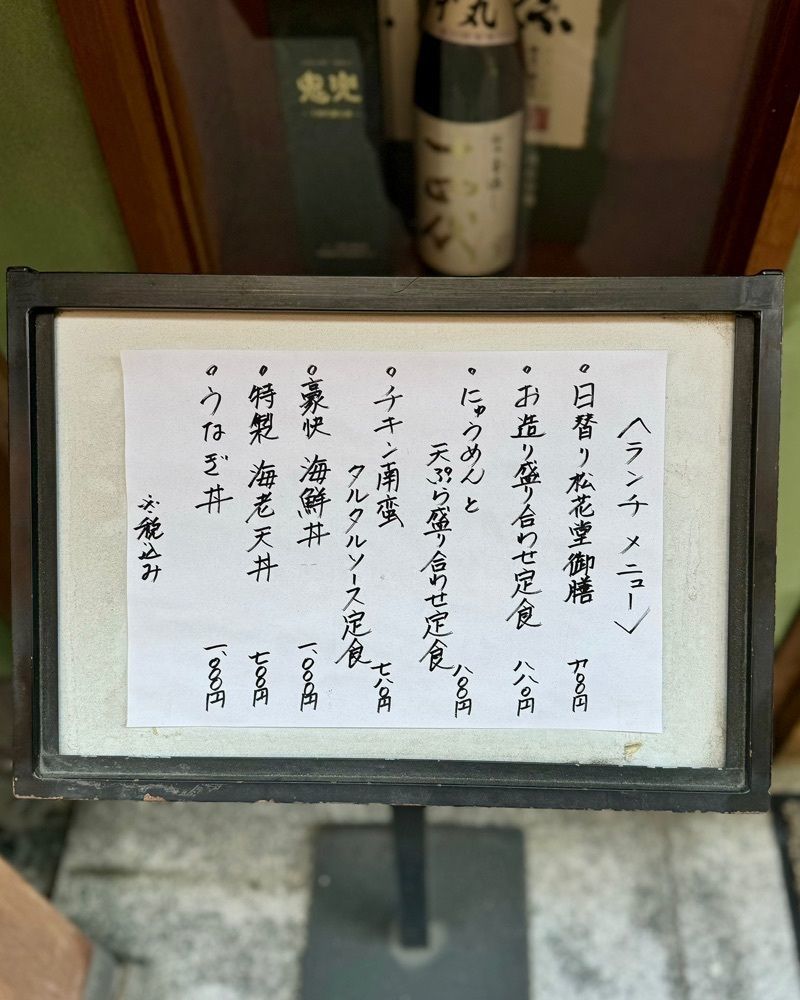 鬼兜
十四代
〈ランチ メニュー〉
◦日替り松花堂御膳 九〇〇円
◦お造り盛り合わせ定食 八八〇円
◦にゅうめんと
天ぷら盛り合わせ定食 八〇〇円
◦チキン南蛮
タルタルソース定食 七八〇円
◦豪快 海鮮丼 一、〇〇〇円
◦特製 海老天丼 七〇〇円
◦うなぎ丼 一、〇〇〇円
※税込み